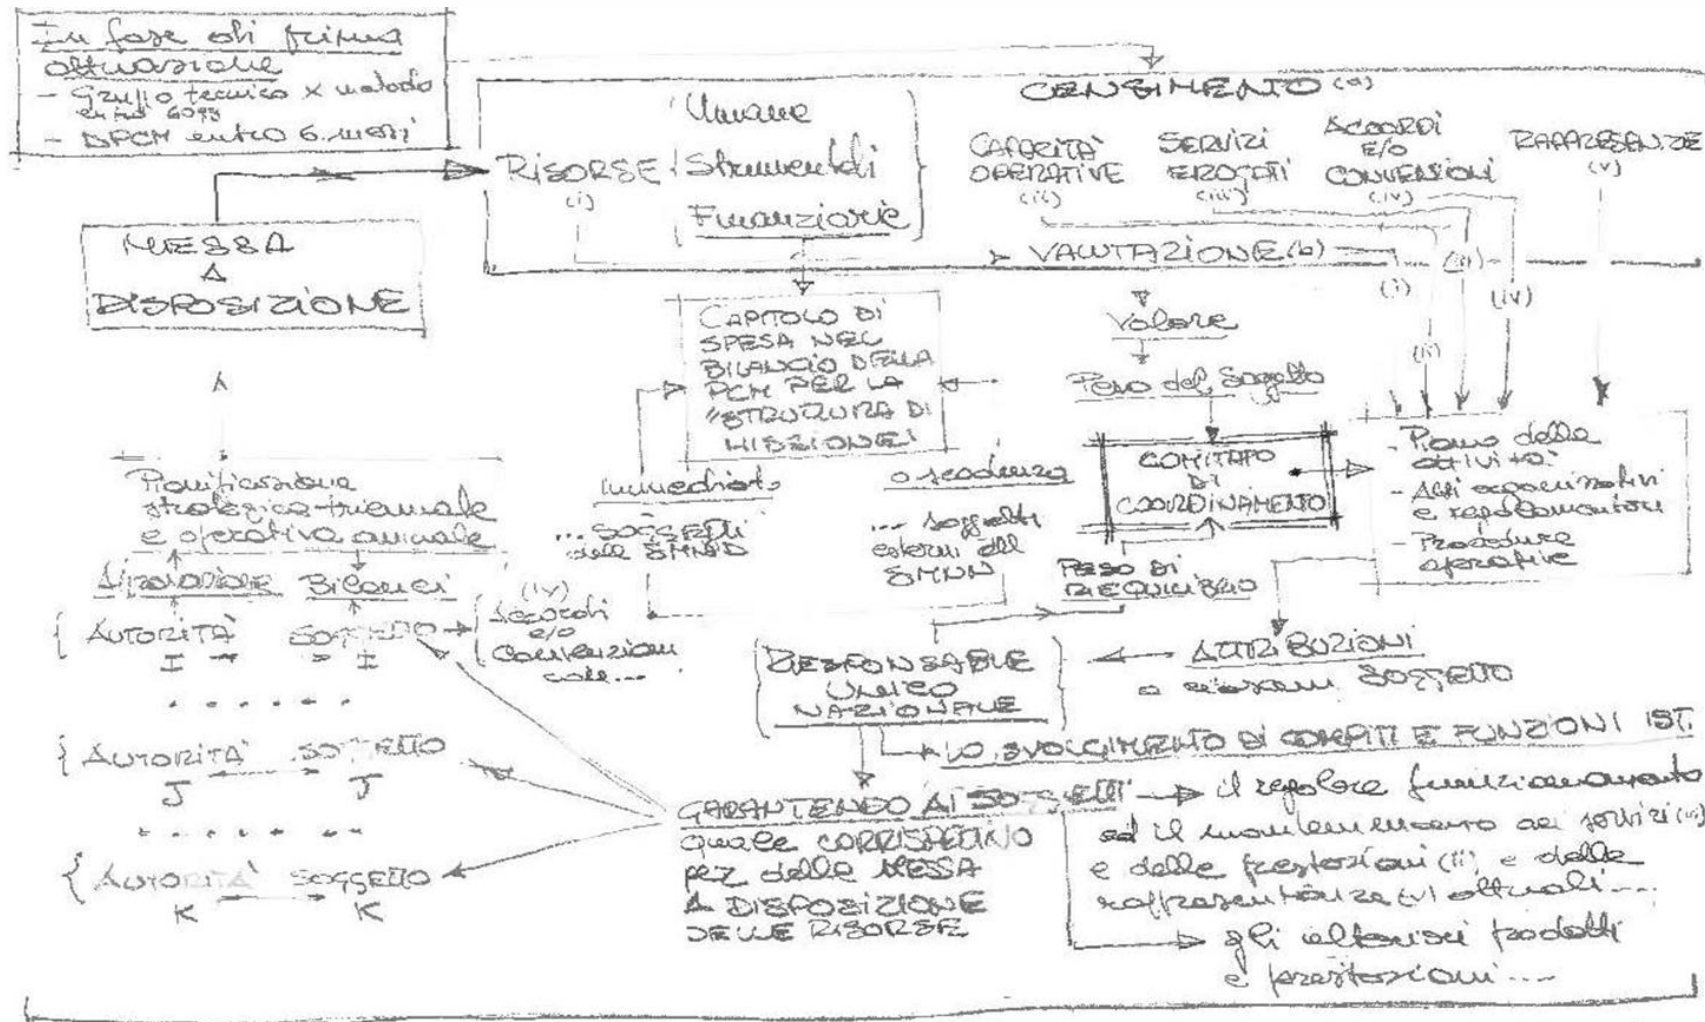 In fase di prima
attuazione
- Gruppo tecnico x metodo
entro 60gg
- DPCM entro 6 mesi
CENSIMENTO (a)
RISORSE
(i)
Umane
Strumentali
Finanziarie
CAPACITÀ
OPERATIVE
(ii)
SERVIZI
EROGATI
(iii)
ACCORDI
E/O
CONVENZIONI
(iv)
RAPPRESENZE
(v)
VALUTAZIONE (b)
(i)
(ii)
(iii)
(iv)
MESSA
A
DISPOSIZIONE
CAPITOLO DI
SPESA NEL
BILANCIO DELLA
PCM PER LA
"STRUTTURA DI
MISSIONE"
Valore
Peso del Soggetto
COMITATO
DI
COORDINAMENTO
- Piano delle
attività
- Atti organizzativi
e regolamentari
- Procedure
operative
Pianificazione
strategica triennale
e operativa annuale
immediata
... SOGGETTI
della
a scadenza
... soggetti
esterni
PESO DI
RIEQUILIBRIO
Bilanci
{ AUTORITÀ SOGGETTO
I I
(iv)
Accordi
e/o
Convenzioni
......
{ AUTORITÀ SOGGETTO
J J
......
{ AUTORITÀ SOGGETTO
K K
RESPONSABILE
UNICO
NAZIONALE
ATTRIBUZIONI
a ciascun SOGGETTO
LO SVOLGIMENTO DI COMPITI E FUNZIONI IST.
GARANTENDO AI SOGGETTI
quale CORRISPETTIVO
per della MESSA
A DISPOSIZIONE
DELLE RISORSE
il regolare funzionamento
ed il mantenimento dei servizi
e delle prestazioni (ii) e delle
(v) attuali....
gli ulteriori prodotti
e prestazioni....